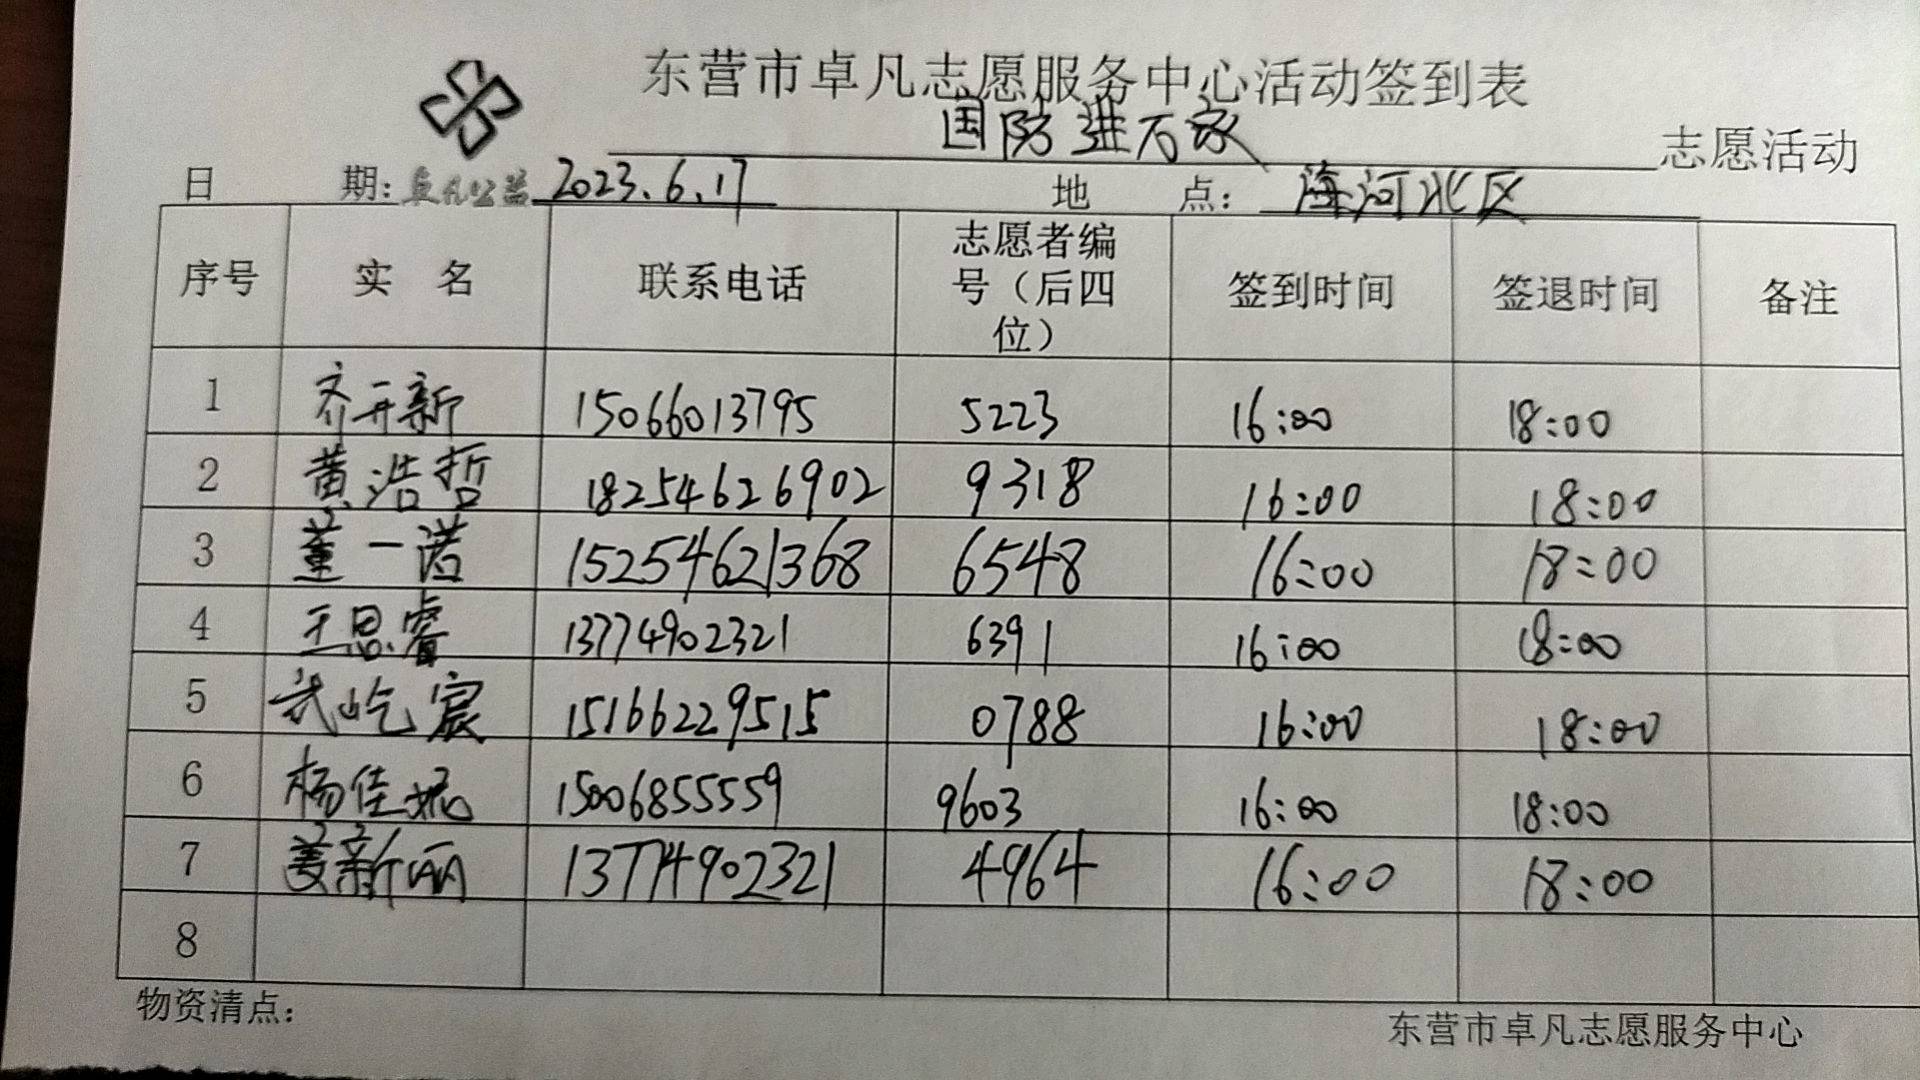 东营市卓凡志愿服务中心活动签到表
国防进万家 志愿活动
日 期: 卓凡公益 2023.6.17 地 点: 海河北区
序号 实 名 联系电话 志愿者编号（后四位） 签到时间 签退时间 备注
1 齐开新 15066013795 5223 16:00 18:00
2 黄浩哲 18254626902 9318 16:00 18:00
3 董一诺 15254621368 6548 16:00 18:00
4 王思睿 13774902321 6391 16:00 18:00
5 武屹宸 15166229515 0788 16:00 18:00
6 杨佳妮 15006855559 9603 16:00 18:00
7 姜新丽 13774902321 4964 16:00 18:00
8
物资清点:
东营市卓凡志愿服务中心